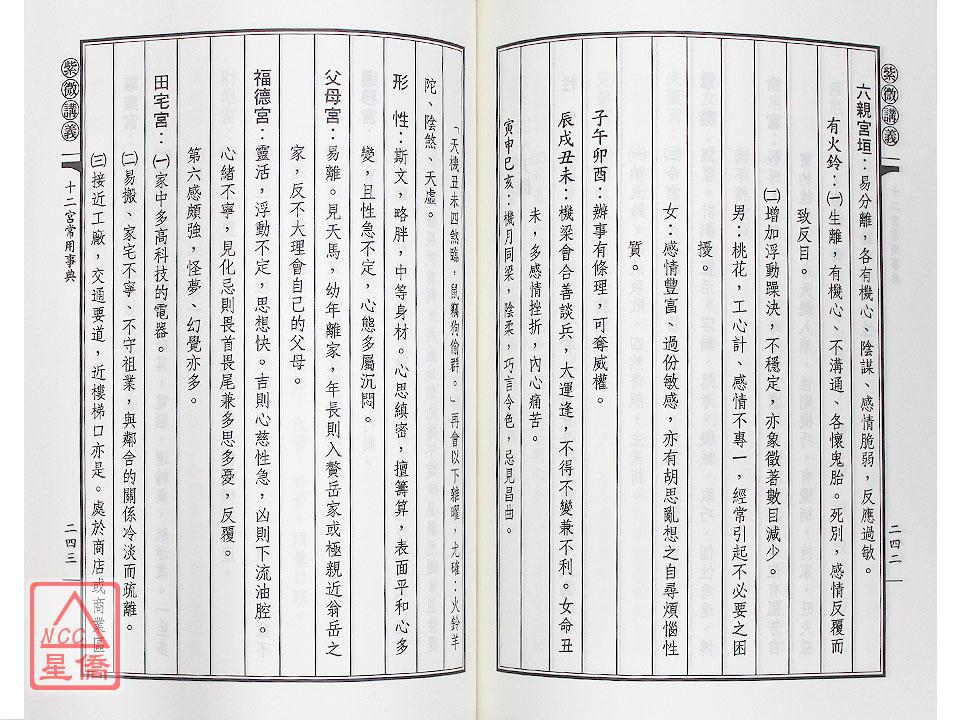 紫微講義
二四二
六親宮垣：易分離，各有機心、陰謀、感情脆弱，反應過敏。
有火鈴：㈠生離，有機心、不溝通、各懷鬼胎。死別，感情反覆而
致反目。
㈡增加浮動躁決，不穩定，亦象徵著數目減少。
男：桃花，工心計、感情不專一，經常引起不必要之困
擾。
女：感情豐富、過份敏感，亦有胡思亂想之自尋煩惱性
質。
子午卯酉：辦事有條理，可奪威權。
辰戌丑未：機梁會合善談兵，大運逢，不得不變兼不利。女命丑
未，多感情挫折，內心痛苦。
寅申巳亥：機月同梁，陰柔，巧言令色，忌見昌曲。
「天機丑未四煞臨，鼠竊狗偷群。」再會以下雜曜，尤確：火鈴羊
陀、陰煞、天虛。
形　性：斯文，略胖，中等身材。心思縝密，擅籌算，表面平和心多
變，且性急不定，心態多屬沉悶。
父母宮：易離。見天馬，幼年離家，年長則入贅岳家或極親近翁岳之
家，反不大理會自己的父母。
福德宮：靈活，浮動不定，思想快。吉則心慈性急，凶則下流油腔。
心緒不寧，見化忌則畏首畏尾兼多思多憂，反覆。
第六感頗強，怪夢、幻覺亦多。
田宅宮：㈠家中多高科技的電器。
㈡易搬、家宅不寧、不守祖業，與鄰舍的關係冷淡而疏離。
㈢接近工廠，交通要道，近樓梯口亦是。處於商店或商業區
紫微講義
十二宮常用事典
二四三
NCC
星僑